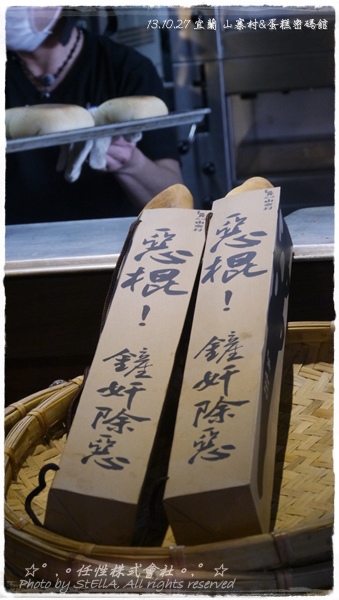 13.10.27 宜蘭 山寨村&蛋糕密碼館
惡棍!
鏟奸除惡
惡棍!
鏟奸除惡
山寨村
☆°.。任性株式會社。.° ☆
Photo by StELlA. All rights reserved